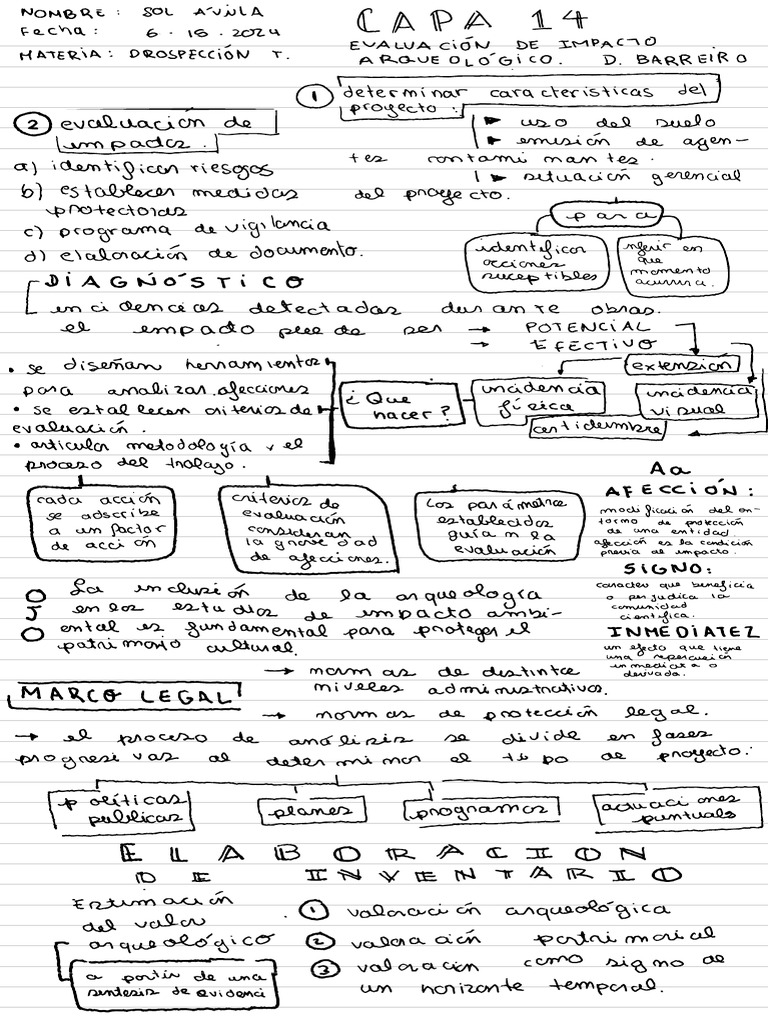 NOMBRE: SOL AVILA
Fecha: 6·16·2024
MATERIA: PROSPECCIÓN T.
CAPA 14
EVALUACIÓN DE IMPACTO
ARQUEOLÓGICO. D. BARREIRO
① determinar características del
proyecto:
▶ uso del suelo
▶ emisión de agen-
tes contaminantes.
▶ situación gerencial
del proyecto.
para
identificar
acciones
suceptibles
inferir en
que
momento
ocurrira.
② evaluación de
impactos.
a) identificar riesgos
b) establecer medidas
protectoras
c) programa de vigilancia
d) elaboración de documento.
DIAGNÓSTICO
incidencias detectadas durante obras.
el impacto puede ser → POTENCIAL
→ EFECTIVO
extensión
incidencia
física
incidencia
visual
certidumbre
¿Que
hacer?
• se diseñan herramientas
para analizar afecciones
• se establecen criterios de
evaluación.
• articular metodología y el
proceso del trabajo.
cada acción
se adscribe
a un factor
de acción
criterios de
evaluación
consideran
la gravedad
de afecciones.
Los parámetros
establecidos
guían la
evaluación
Aa
AFECCIÓN:
modificación del en-
torno de protección
de una entidad
afección es la condición
previa al impacto.
SIGNO:
caracter que beneficia
o perjudica la
comunidad
científica.
INMEDIATEZ
un efecto que tiene
una repercusión
inmediata o
derivada.
OJO
La inclusión de la arqueología
en los estudios de impacto ambi-
ental es fundamental para proteger el
patrimonio cultural.
MARCO LEGAL
→ normas de distintos
niveles administrativos.
→ normas de protección legal.
→ el proceso de análisis se divide en fases
progresivas al determinar el tipo de proyecto:
políticas
publicas
planes
programas
actuaciones
puntuals
ELABORACION
DE INVENTARIO
Estimación
del valor
arqueológico
a partir de una
sintesis de evidenci
① valoración arqueológica
② valoración patrimonial
③ valoración como signo de
un horizonte temporal.